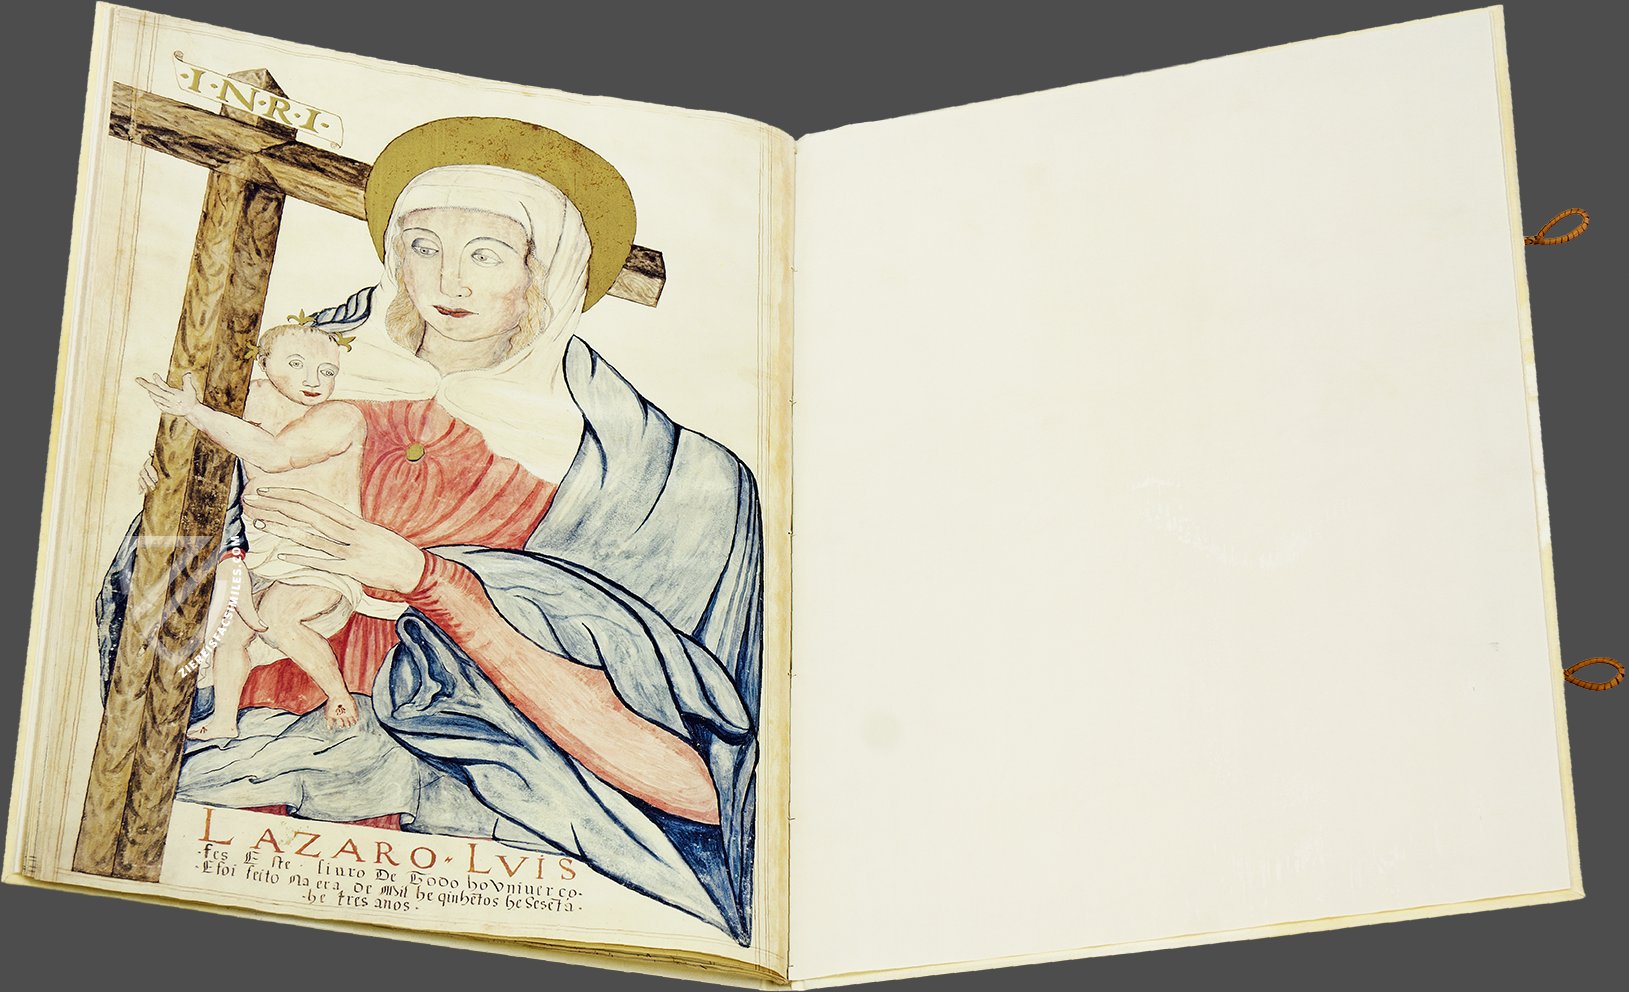 ·I·N·R·I·
LAZARO·LVIS
·fes Este · liuro De Todo ho Vniuerço·
·E foi feito Na era de Mil he qinhẽtos he Sesẽta·
·he tres anos·
ZIEREISFACSIMILES.COM